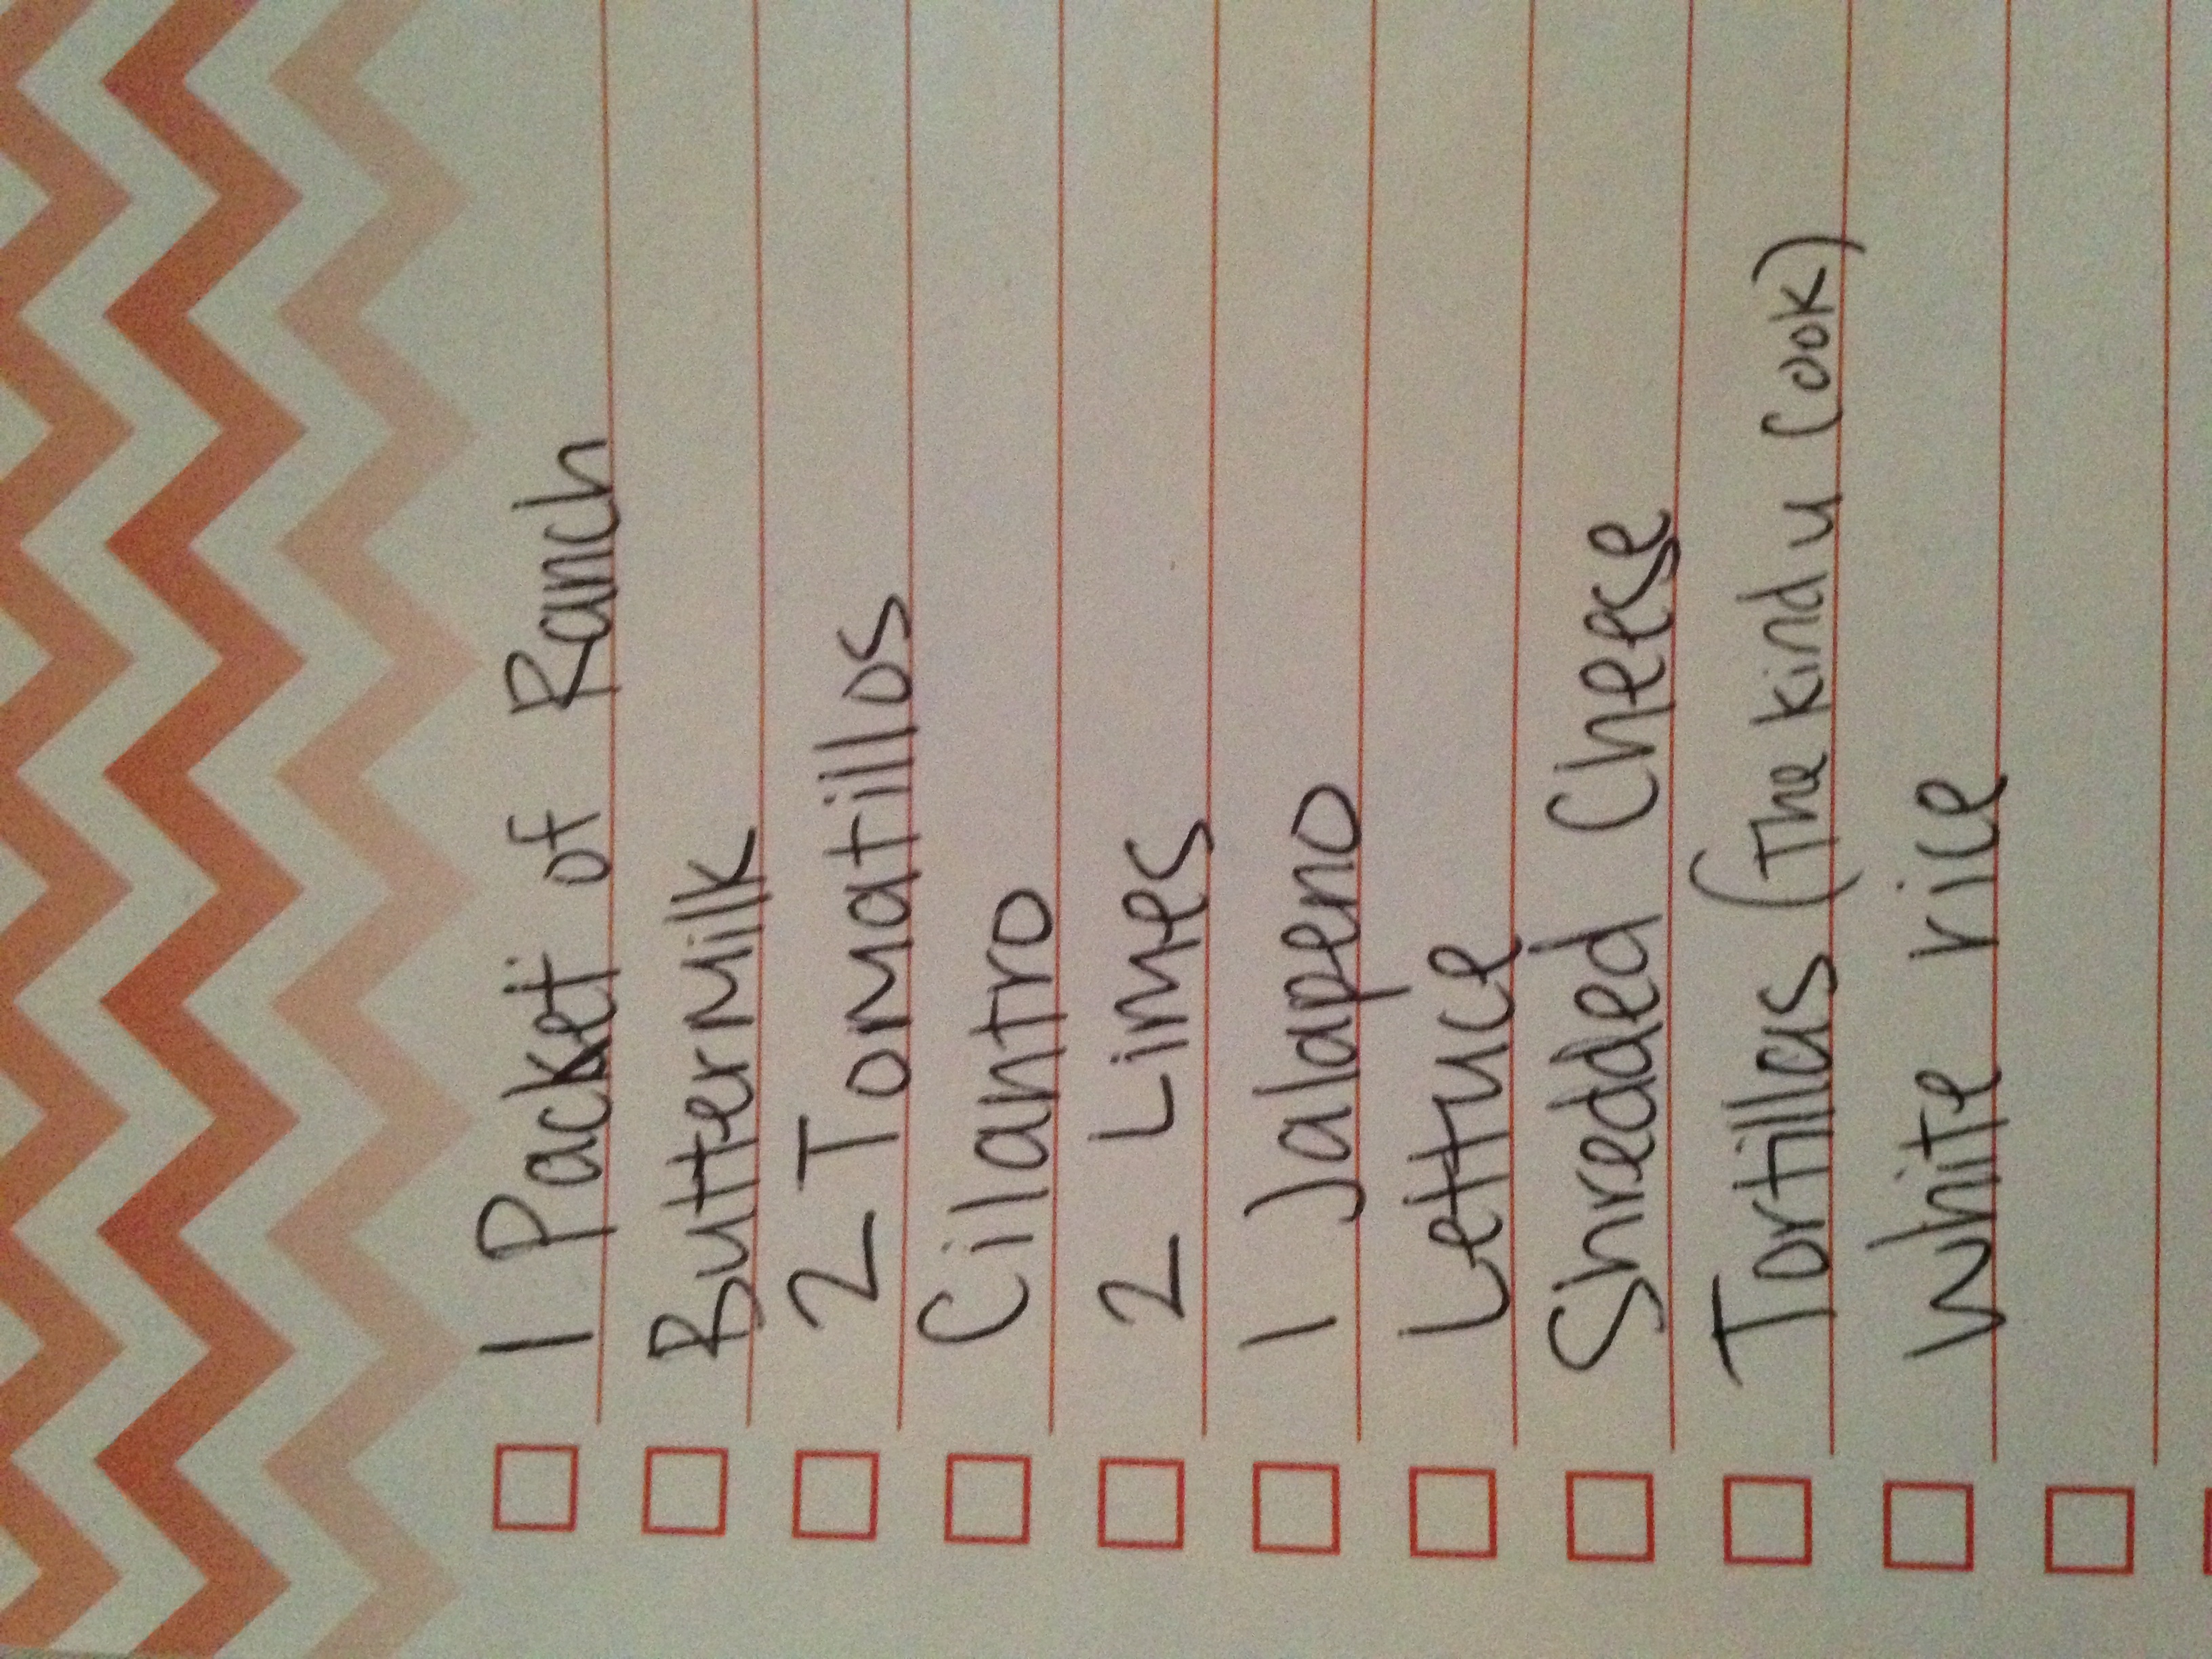 1 Packet of Ranch
ButterMilk
2 Tomatillos
Cilantro
2 Limes
1 Jalapeno
Lettuce
Shredded Cheese
Tortillas (The kind u Cook)
White rice